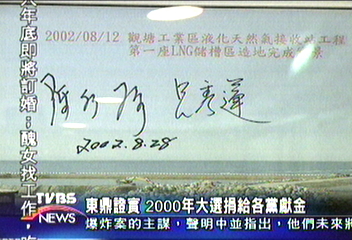 2002/08/12 觀塘工業區液化天然氣接收站工程
第一座LNG儲槽區造地完成
2002.8.28
年底即將訂婚;醜女找工作,
TVBS
NEWS
東鼎證實 2000年大選捐給各黨獻金
爆炸案的主謀,聲明中並指出,他們未來將